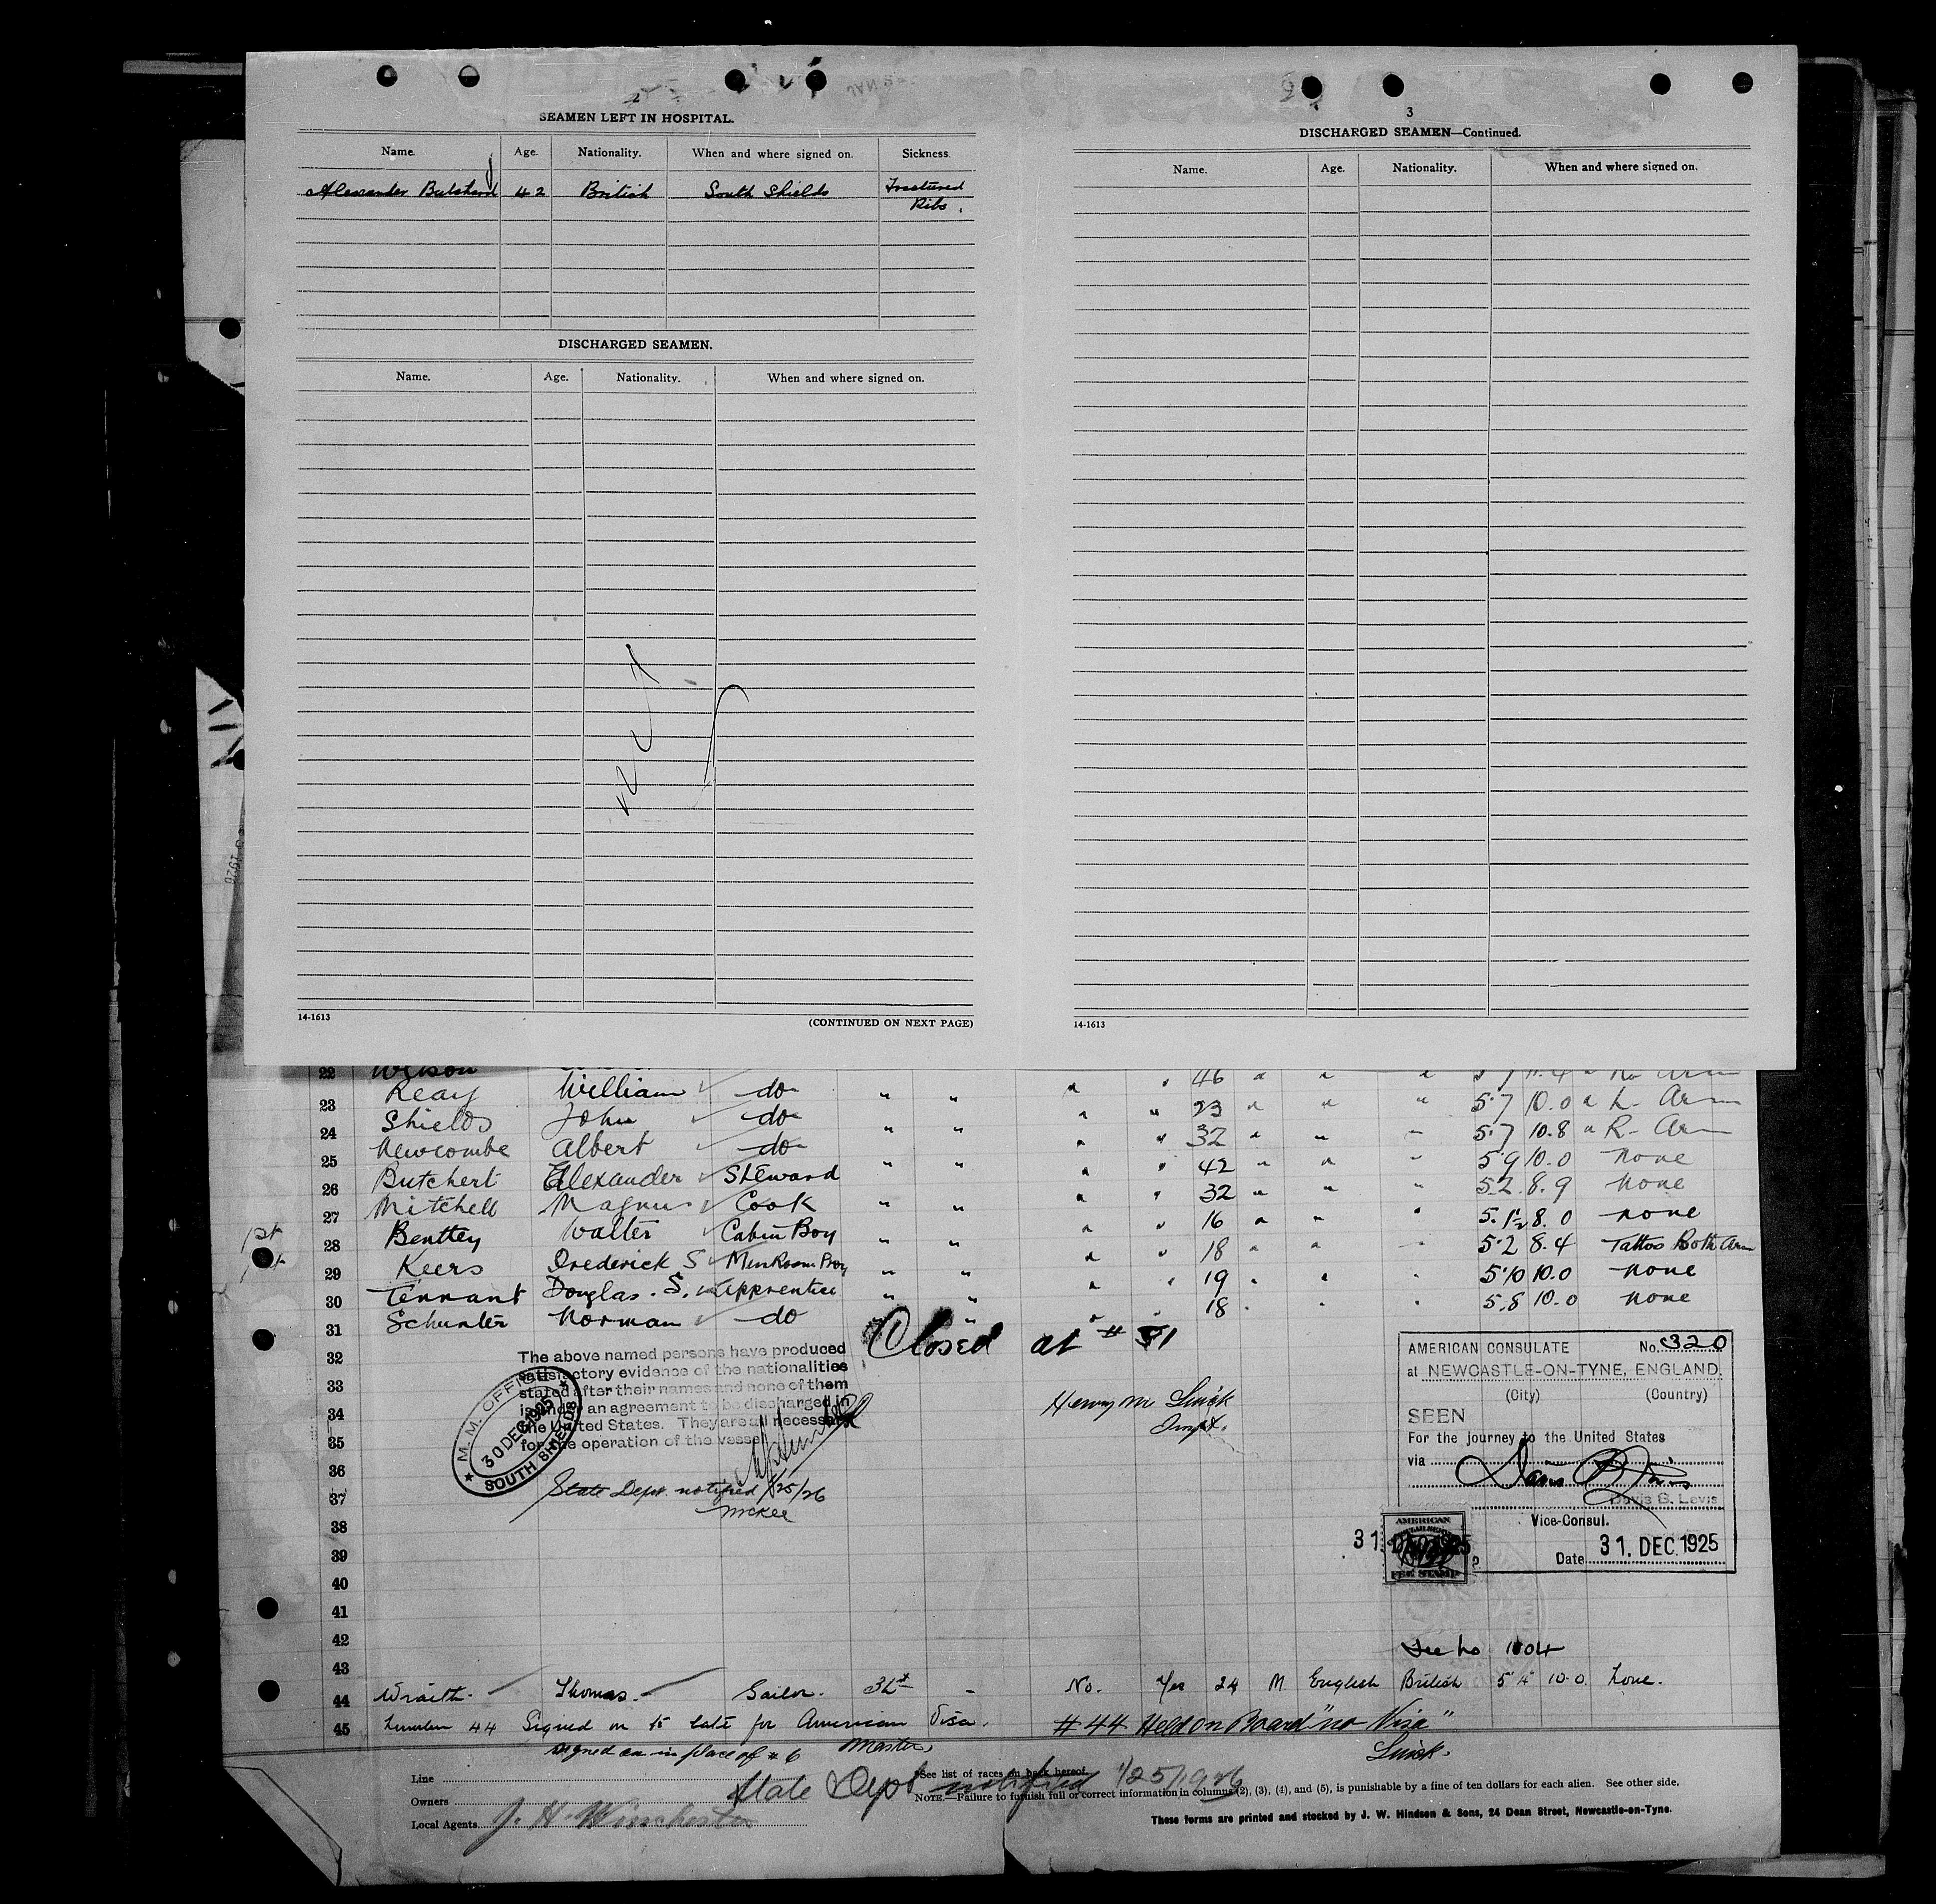 2
SEAMEN LEFT IN HOSPITAL.
Name. Age. Nationality. When and where signed on. Sickness.
Alexander 42 British South Shields Fractured
Ribs.
DISCHARGED SEAMEN.
Name. Age. Nationality. When and where signed on.
14-1613 (CONTINUED ON NEXT PAGE)
3
DISCHARGED SEAMEN—Continued.
Name. Age. Nationality. When and where signed on.
14-1613
22 Wilson
23 Reay William do " " " " 46 " " "
24 Shields John do " " " " 23 " " " 5.7 10.0 " L. Arm
25 Newcombe Albert do " " " " 32 " " " 5.7 10.8 " R. Arm
26 Butchert Alexander Steward " " " " 42 " " " 5.9 10.0 none
27 Mitchell Magnus Cook " " " " 32 " " " 5.2 8.9 none
28 Bentley Walter Cabin Boy " " " " 16 " " " 5.1½ 8.0 none
29 Keers Frederick S Mess Room Boy " " " " 18 " " " 5.2 8.4 Tattoo Both Arm
30 Tennant Douglas. S. Apprentice " " " " 19 " " " 5.10 10.0 none
31 Schunter Norman do " " " " 18 " " " 5.8 10.0 none
Closed at # 31
32
33
34
35
36
37
38
39
40
41
42
43
The above named persons have produced
satisfactory evidence of the nationalities
stated after their names and none of them
is under an agreement to be discharged in
the United States. They are all necessary
for the operation of the vessel
M. M. OFFICE
30 DEC 1925
SOUTH SHIELDS
State Dept. notified 1/25/26
McKee
Henry M.
Inspt.
AMERICAN CONSULATE No. 320
at NEWCASTLE-ON-TYNE, ENGLAND.
(City) (Country)
SEEN
For the journey to the United States
via
Davis B. Levis
Vice-Consul.
Date 31. DEC. 1925
AMERICAN
FEE STAMP
31 DEC 1925
See no 1004
44 Wraith. Thomas. Sailor. - No. Yes 24 M English British 5" 4" 10-0 None.
45 Number 44 Signed on to late for American Visa. #44 Held on Board "no Visa"
Signed on in place of # 6 Master,
Line
Owners
Local Agents J. H. Winchester
State Dept notified 1/25/1926
*See list of races on back hereof.
NOTE.—Failure to furnish full or correct information in columns (2), (3), (4), and (5), is punishable by a fine of ten dollars for each alien. See other side.
These forms are printed and stocked by J. W. Hindson & Sons, 24 Dean Street, Newcastle-on-Tyne.